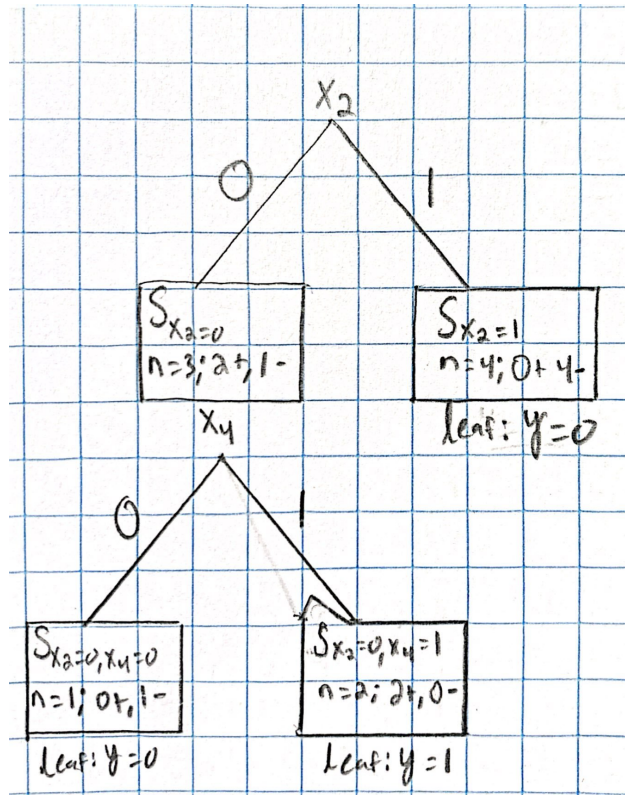 X₂
0
1
Sₓ₂=0
n=3; 2+, 1-
Sₓ₂=1
n=4; 0+ 4-
leaf: y=0
X₄
0
1
Sₓ₂=0,ₓ₄=0
n=1; 0+, 1-
leaf: y=0
Sₓ₂=0,ₓ₄=1
n=2; 2+, 0-
leaf: y=1